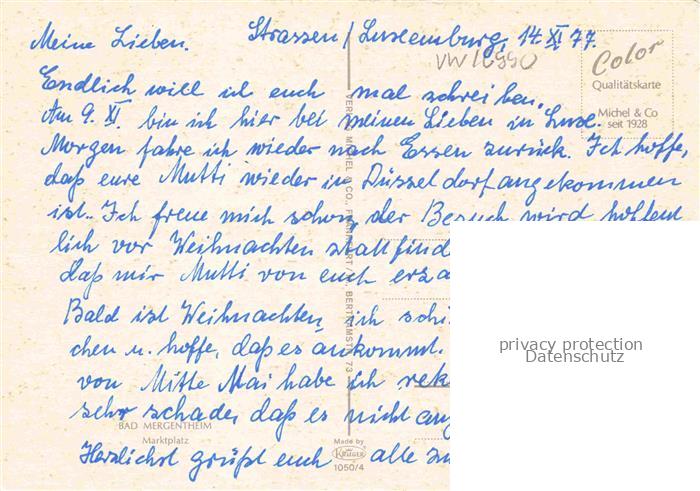 Meine Lieben. Strassen / Luxemburg, 14. XI 77.
VW16990
Color
Qualitätskarte
Michel & Co
seit 1928
Endlich will ich euch mal schreiben.
Am 9. XI. bin ich hier bei meinen Lieben in Luxe.
Morgen fahre ich wieder nach Essen zurück. Ich hoffe,
daß eure Mutti wieder in Düsseldorf angekommen
ist. Ich freue mich schon, der Besuch wird hoffent
lich vor Weihnachten stattfind
daß mir Mutti von euch erzä
Bald ist Weihnachten, ich schi
chen u. hoffe, daß es ankommt.
von Mitte Mai habe ich rek
sehr schade, daß es nicht ang
Herzlichst grüßt euch alle zu
BAD MERGENTHEIM
Marktplatz
Made by
KRÜGER
1050/4
privacy protection
Datenschutz